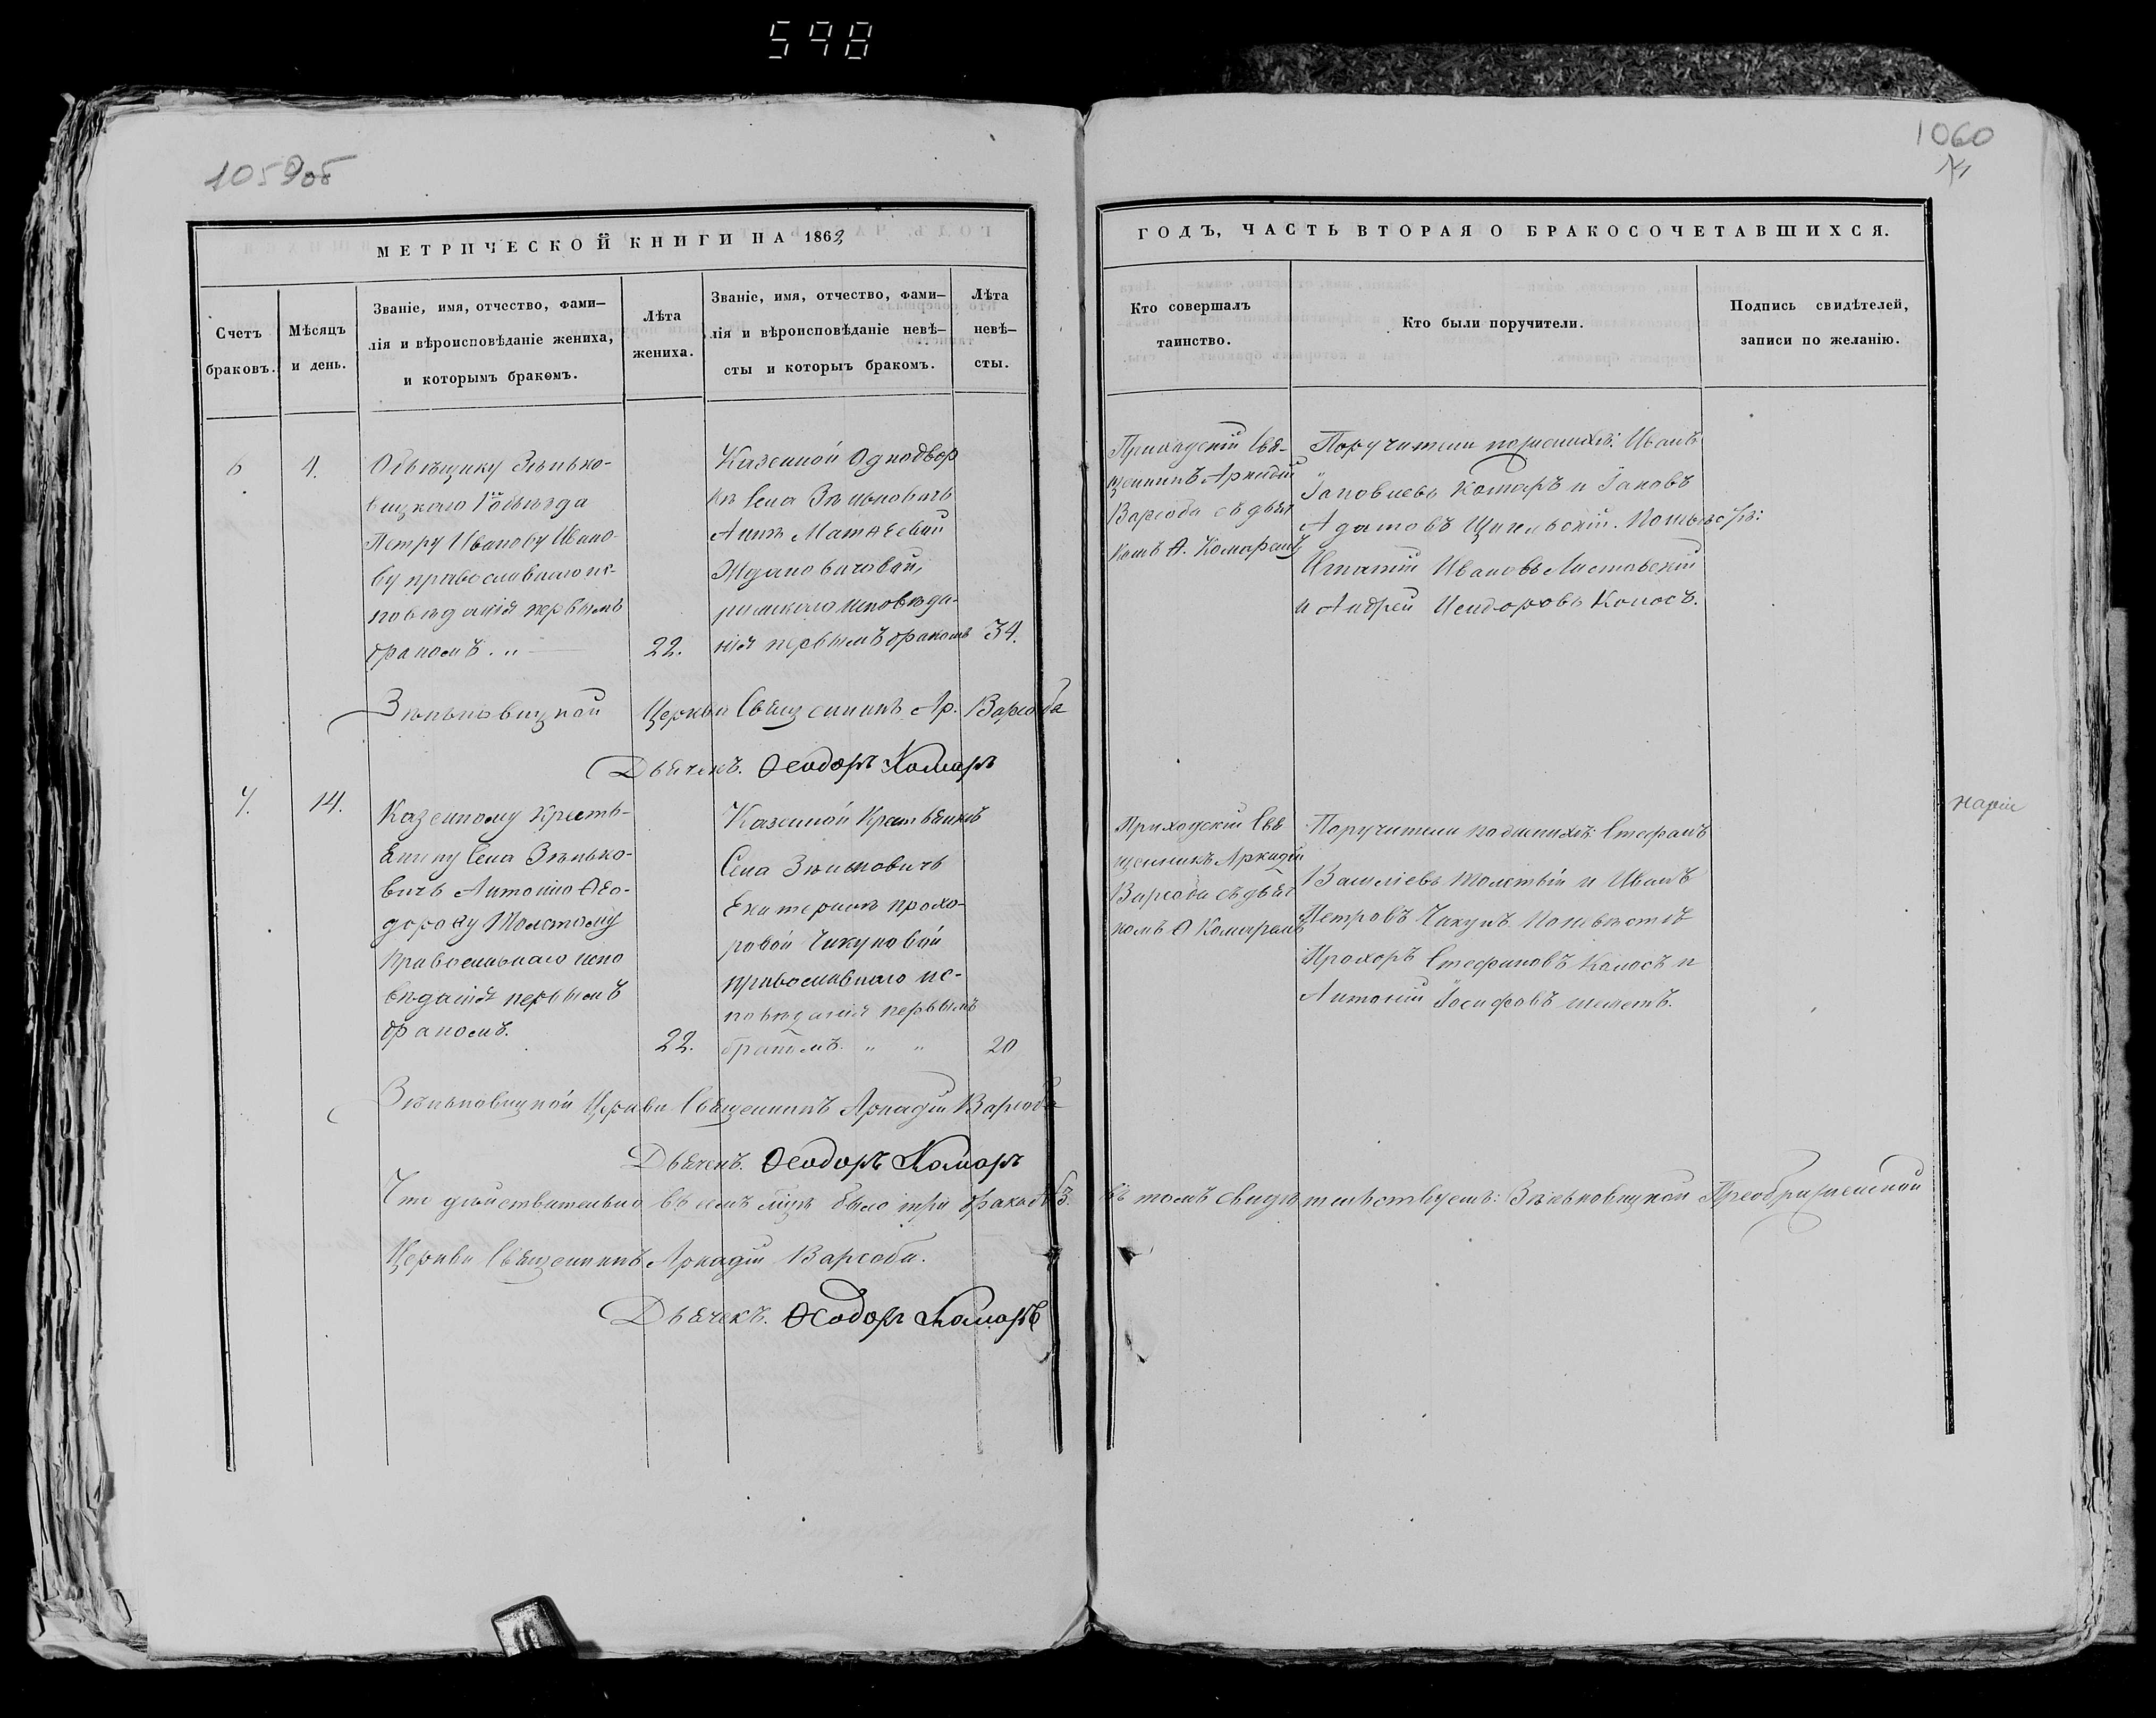 598
1059об
1060
МЕТРИЧЕСКОЙ КНИГИ НА 1863
ГОДЪ, ЧАСТЬ ВТОРАЯ О БРАКОСОЧЕТАВШИХСЯ.
Счетъ
браковъ.
Мѣсяцъ
и день.
Званіе, имя, отчество, фами–
лія и вѣроисповѣданіе жениха,
и которымъ бракомъ.
Лѣта
жениха.
Званіе, имя, отчество, фами–
лія и вѣроисповѣданіе невѣ–
сты и которыъ бракомъ.
Лѣта
невѣ–
сты.
Кто совершалъ
таинство.
Кто были поручители.
Подпись свидѣтелей,
записи по желанію.
6
4.
Объѣщику Зѣнько-
вицкаго объѣзда
Петру Иванову Ивано-
ву православнаго ис-
повѣданія первымъ
бракомъ. „
22.
Казенной Однодвор
кѣ Села Зѣньковичь
Аннѣ Матѳеевой
Ждановичовой,
римскаго исповѣда-
нія первымъ бракомъ
34.
Приходскій Свя-
щенникъ Аркадій
Варсоба съ дьяч
комъ Ѳ. Комаремъ
Поручители по женихѣ: Иванъ
Іаковлевъ Комаръ и Іаковъ
Адамовъ По невѣстѣ:
Игнатій Ивановъ Листовскій
и Андрей Исидоровъ Колосъ.
Зѣньковицкой Церкви Священникъ Ар. Варсоба
Дьячекъ. Ѳеодоръ Комаръ
7.
14.
Казенному Кресть-
янину Села Зѣнько-
вичь Антонію Ѳео-
дорову Толстому
Православнаго испо
вѣданія первымъ
бракомъ.
22.
Казенной Крестьянкѣ
Села Зѣньковичь
Екатеринѣ Прохо-
ровой Чикуновой
православнаго ис-
повѣданія первымъ
бракомъ. „ „
20
Приходскій Свя
щенникъ Аркадій
Варсоба съ дьяч
комъ Ѳ Комаремъ
Поручители по женихѣ: Стефанъ
Василіевъ Толстый и Иванъ
Петровъ Чикунъ По невѣстѣ
Прохоръ Стефановъ Колосъ и
Антоній Іосифовъ Шеметъ.
Зѣньковицкой Церкви Священникъ Аркадій Варсоба
Дьячекъ. Ѳеодоръ Комаръ
Что дѣйствительно въ семъ мцѣ было три брака №3. въ томъ свидѣтельствуемъ: Зѣньковицкой Преображенской
Церкви Священникъ Аркадій Варсоба.
Дьячекъ. Ѳеодоръ Комаръ